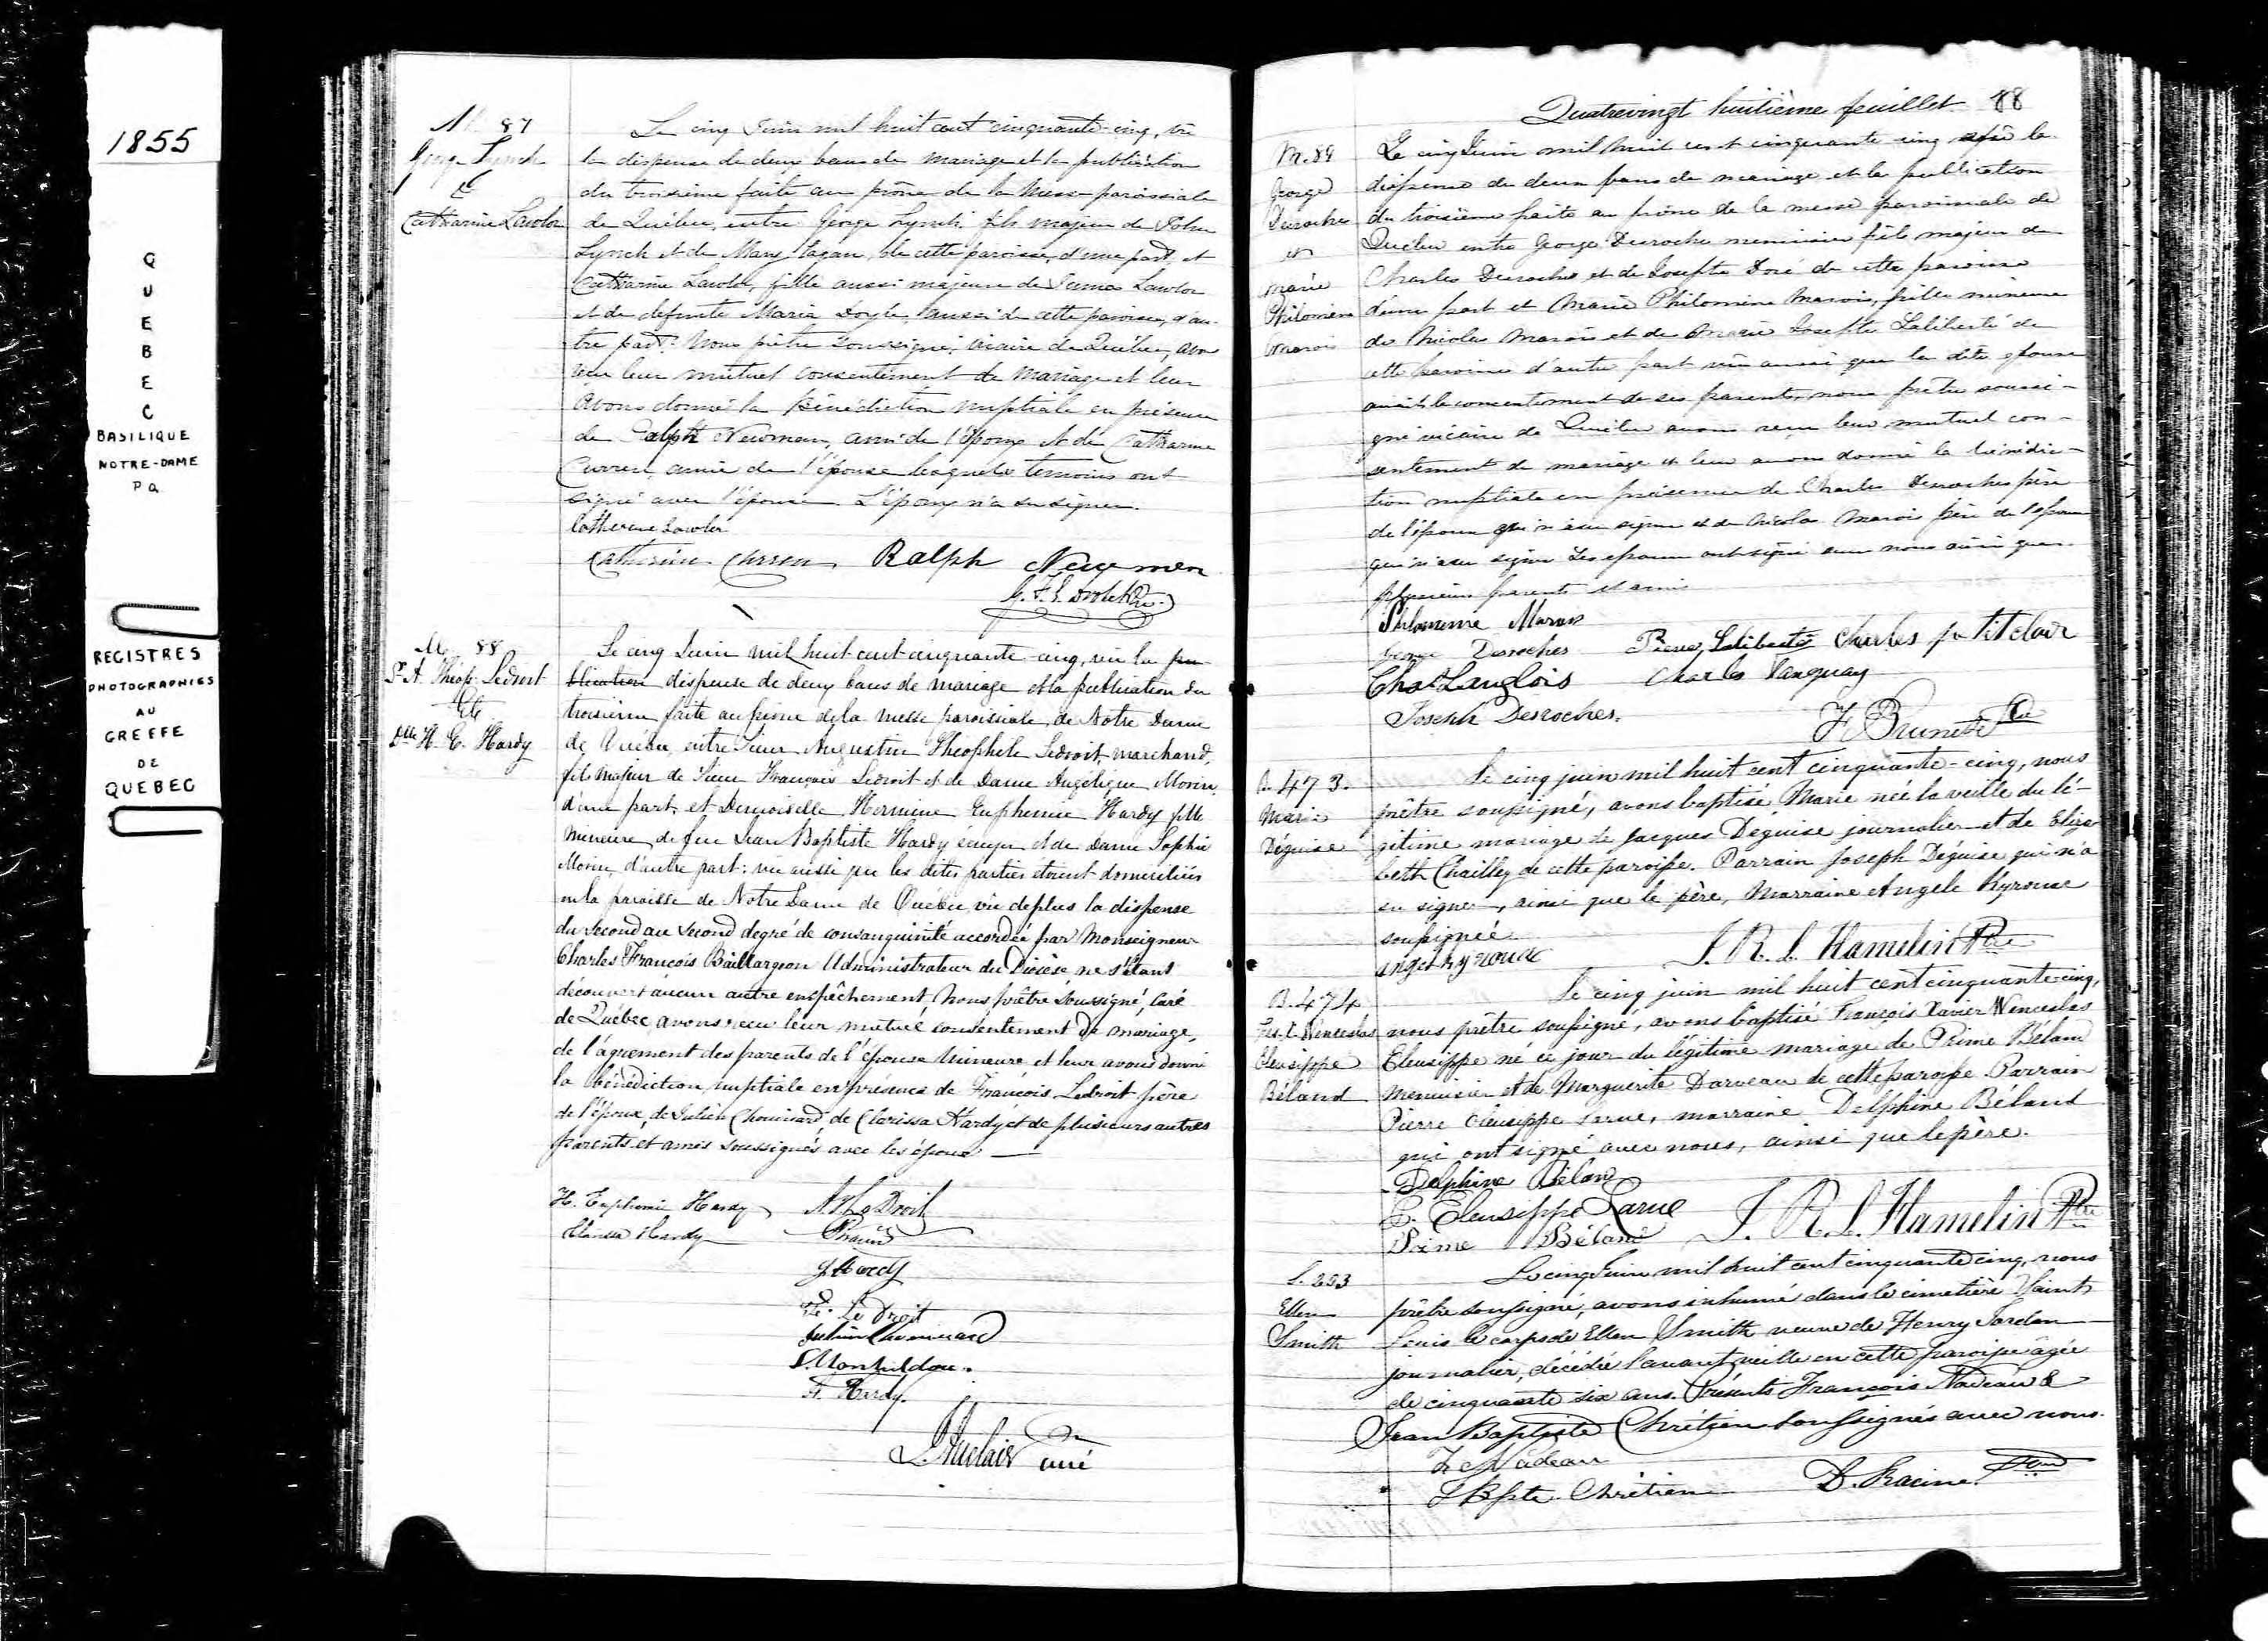 1855
QUEBEC
BASILIQUE
NOTRE-DAME
P Q
REGISTRES
PHOTOGRAPHIES
AU
GREFFE
DE
QUEBEC
M 87
George Lynch
&
Catharine Lawlor
Le cinq Juin mil huit cent cinquante-cinq, vu
la dispense de deux bans de mariage et la publication
du troisième faite au prône de la Messe paroissiale
de Québec, entre George Lynch fils majeur de John
Lynch et de Mary Eagan, de cette paroisse, d'une part, et
Catharine Lawlor, fille aussi majeure de James Lawlor
et de defunte Maria Doyle, aussi de cette paroisse, d'au-
tre part. Nous prêtre soussigné, vicaire de Québec, avons
reçu leur mutuel consentement de mariage et leur
avons donné la Bénédiction nuptiale en présence
de Ralph Newman, ami de l'époux et de Catharine
Curren, amie de l'épouse lesquels temoins ont
signé avec l'épouse. L'époux n'a su signer.
Catherine Lawler
Catherine Curren Ralph Newmen
G. F. E. Drolet Ptre.
M. 88
Sr A. Théop. Ledroit
Et
Dlle H. E. Hardy
Le cinq Juin mil huit cent cinquante-cinq, vu la pu-
blication dispense de deux bans de mariage et la publication du
troisième faite au prône de la messe paroissiale, de Notre Dame
de Québec, entre Sieur Augustin Théophile Ledroit, marchand,
fils majeur de Sieur François Ledroit et de Dame Angélique Morin,
d'une part, et Demoiselle Hermine Euphemie Hardy fille
mineure de feu Jean Baptiste Hardy écuyer et de Dame Sophie
Morin, d'autre part: vu aussi que les dites parties étoient domiciliées
en la paroisse de Notre Dame de Québec, vu de plus la dispense
du second au second degré de consanguinité accordée par Monseigneur
Charles François Baillargeon Administrateur du Diocèse ne s'étant
découvert aucun autre empêchement, Nous prêtre soussigné, Curé
de Québec, avons reçu leur mutuel consentement de mariage,
de l'agrement des parents de l'épouse mineure et leur avons donné
la bénédiction nuptiale en présence de François Ledroit père
de l'époux, de Julien Chouinard, de Clarissa Hardy et de plusieurs autres
parents et amis soussignés avec les époux
H. Euphemie Hardy A. T. LeDroit
Clarissa Hardy
J. Hardy
Fs. Le Droit
Julien Chouinard
F. Hardy.
Auclair Ptre curé
Quatrevingt huitième feuillet 88
M. 89
George
Desroches
et
Marie
Philomène
Marois
Le cinq Juin mil huit cent cinquante cinq vu la
dispense de deux bans de mariage et la publication
du troisième faite au prône de la messe paroissiale de
Québec entre George Desroches menuisier fils majeur de
Charles Desroches et de Josephte Doré de cette paroisse
d'une part et Marie Philomène Marois, fille mineure
de Nicolas Marois et de Marie Josephte Laliberté de
cette paroisse d'autre part vu aussi que la dite épouse
avait le consentement de ses parents, nous prêtre soussi-
gné vicaire de Québec avons reçu leur mutuel con-
sentement de mariage et leur avons donné la bénédic-
tion nuptiale en présence de Charles Desroches père
de l'époux qui n'a su signer et de Nicolas Marois père de l'épouse
qui n'a su signer Les époux ont signé avec nous ainsi que
plusieurs parents et amis
Philomene Marois
George Desroches Pierre Laliberté Charles petitclair
Chas Langlois Charles Tanguay
Joseph Desroches.
F. Brunet Ptre
B. 473.
Marie
Déguise
Le cinq juin mil huit cent cinquante-cinq, nous
prêtre soussigné, avons baptisé Marie née la veille du lé-
gitime mariage de Jacques Déguise journalier et de Eliza-
beth Chailley de cette paroisse. Parrain Joseph Déguise qui n'a
su signer, ainsi que le père, Marraine Angele Kyrouac
soussignée.
angel kyrouac J. R. L. Hamelin Ptre
B. 474
Frs. X. Wenceslas
Eleusippe
Béland
Le cinq juin mil huit cent cinquante-cinq,
nous prêtre soussigné, avons baptisé François Xavier Wenceslas
Eleusippe né ce jour du légitime mariage de Prime Béland
menuisier et de Marguerite Darveau de cette paroisse. Parrain
Pierre Eleusippe Larue, marraine Delphine Béland
qui ont signé avec nous, ainsi que le père.
Delphine Béland
P. Eleusippe Larue J. R. L. Hamelin Ptre
Prime Béland
S. 253
Ellen
Smith
Le cinq Juin mil huit cent cinquante cinq, nous
prêtre soussigné, avons inhumé dans le cimetière Saint
Louis le corps de Ellen Smith veuve de Henry Jordan
journalier, décédée l'avant veille en cette paroisse âgée
de cinquante six ans. Présents François Nadeau &
Jean Baptiste Chrétien soussignés avec nous.
F Nadeau
J Bpte Chrétien D. Racine Ptre